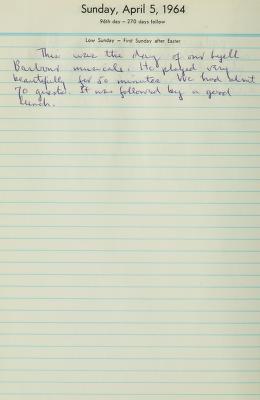 Sunday, April 5, 1964
96th day — 270 days follow
Low Sunday — First Sunday after Easter
This was the day of our Lyell
Barbour musicale. He played very
beautifully for 50 minutes. We had about
70 guests. It was followed by a good
lunch.